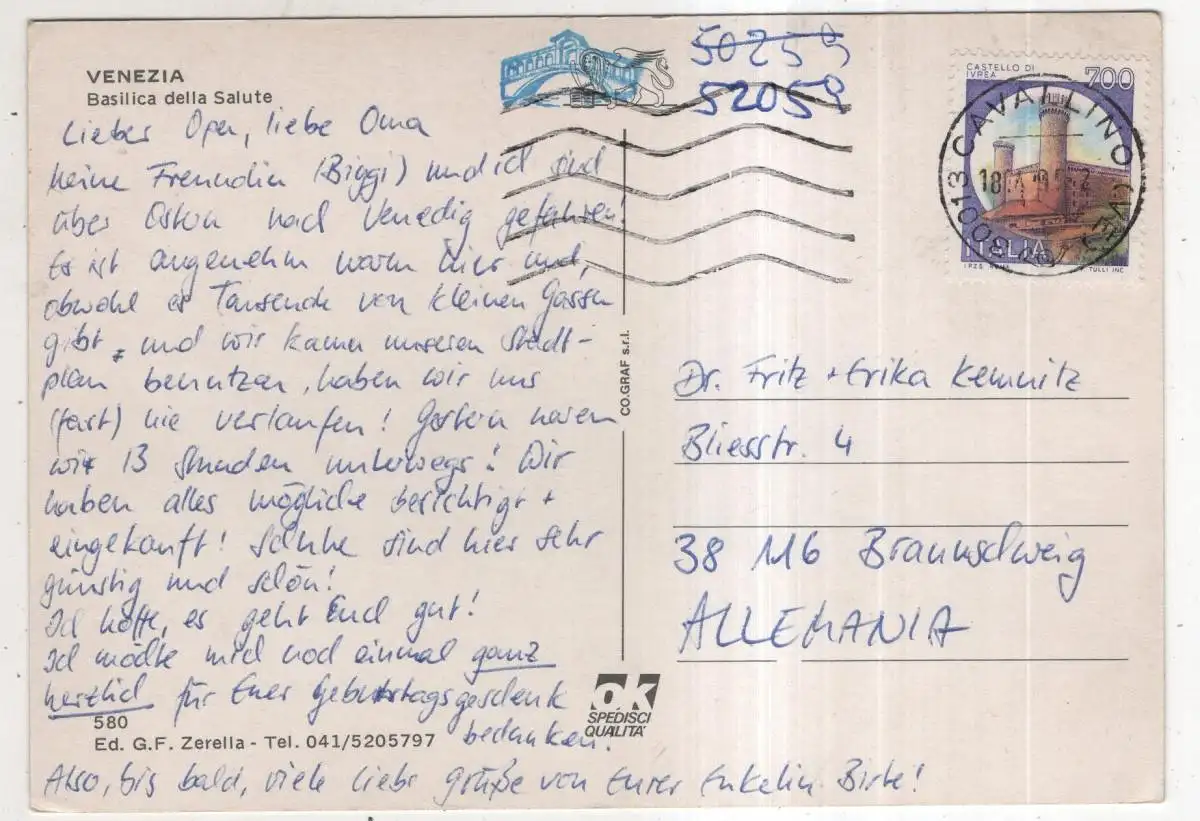 VENEZIA
Basilica della Salute
Lieber Opa, liebe Oma
Meine Freundin (Biggi) und ich sind
über Ostern nach Venedig gefahren!
Es ist angenehm warm hier und,
obwohl es Tausende von kleinen Gassen
gibt, und wir kaum unseren Stadt-
plan benutzen, haben wir uns
(fast) nie verlaufen! Gestern waren
wir 13 Stunden unterwegs! Wir
haben alles mögliche besichtigt +
eingekauft! Schuhe sind hier sehr
günstig und schön!
Ich hoffe, es geht Euch gut!
Ich möchte mich noch einmal ganz
herzlich für Euer Geburtstagsgeschenk
bedanken!
Also, bis bald, viele liebe Grüße von Eurer Enkelin Birte!
580
Ed. G.F. Zerella - Tel. 041/5205797
CO.GRAF s.r.l.
OK
SPEDISCI
QUALITA'
50259
52059
CASTELLO DI
IVREA
700
ITALIA
I.P.Z.S. ROMA
TULLI INC.
30013 CAVALLINO
(VE)
18
Dr. Fritz + Erika Kemnitz
Bliesstr. 4
38 116 Braunschweig
ALLEMANIA